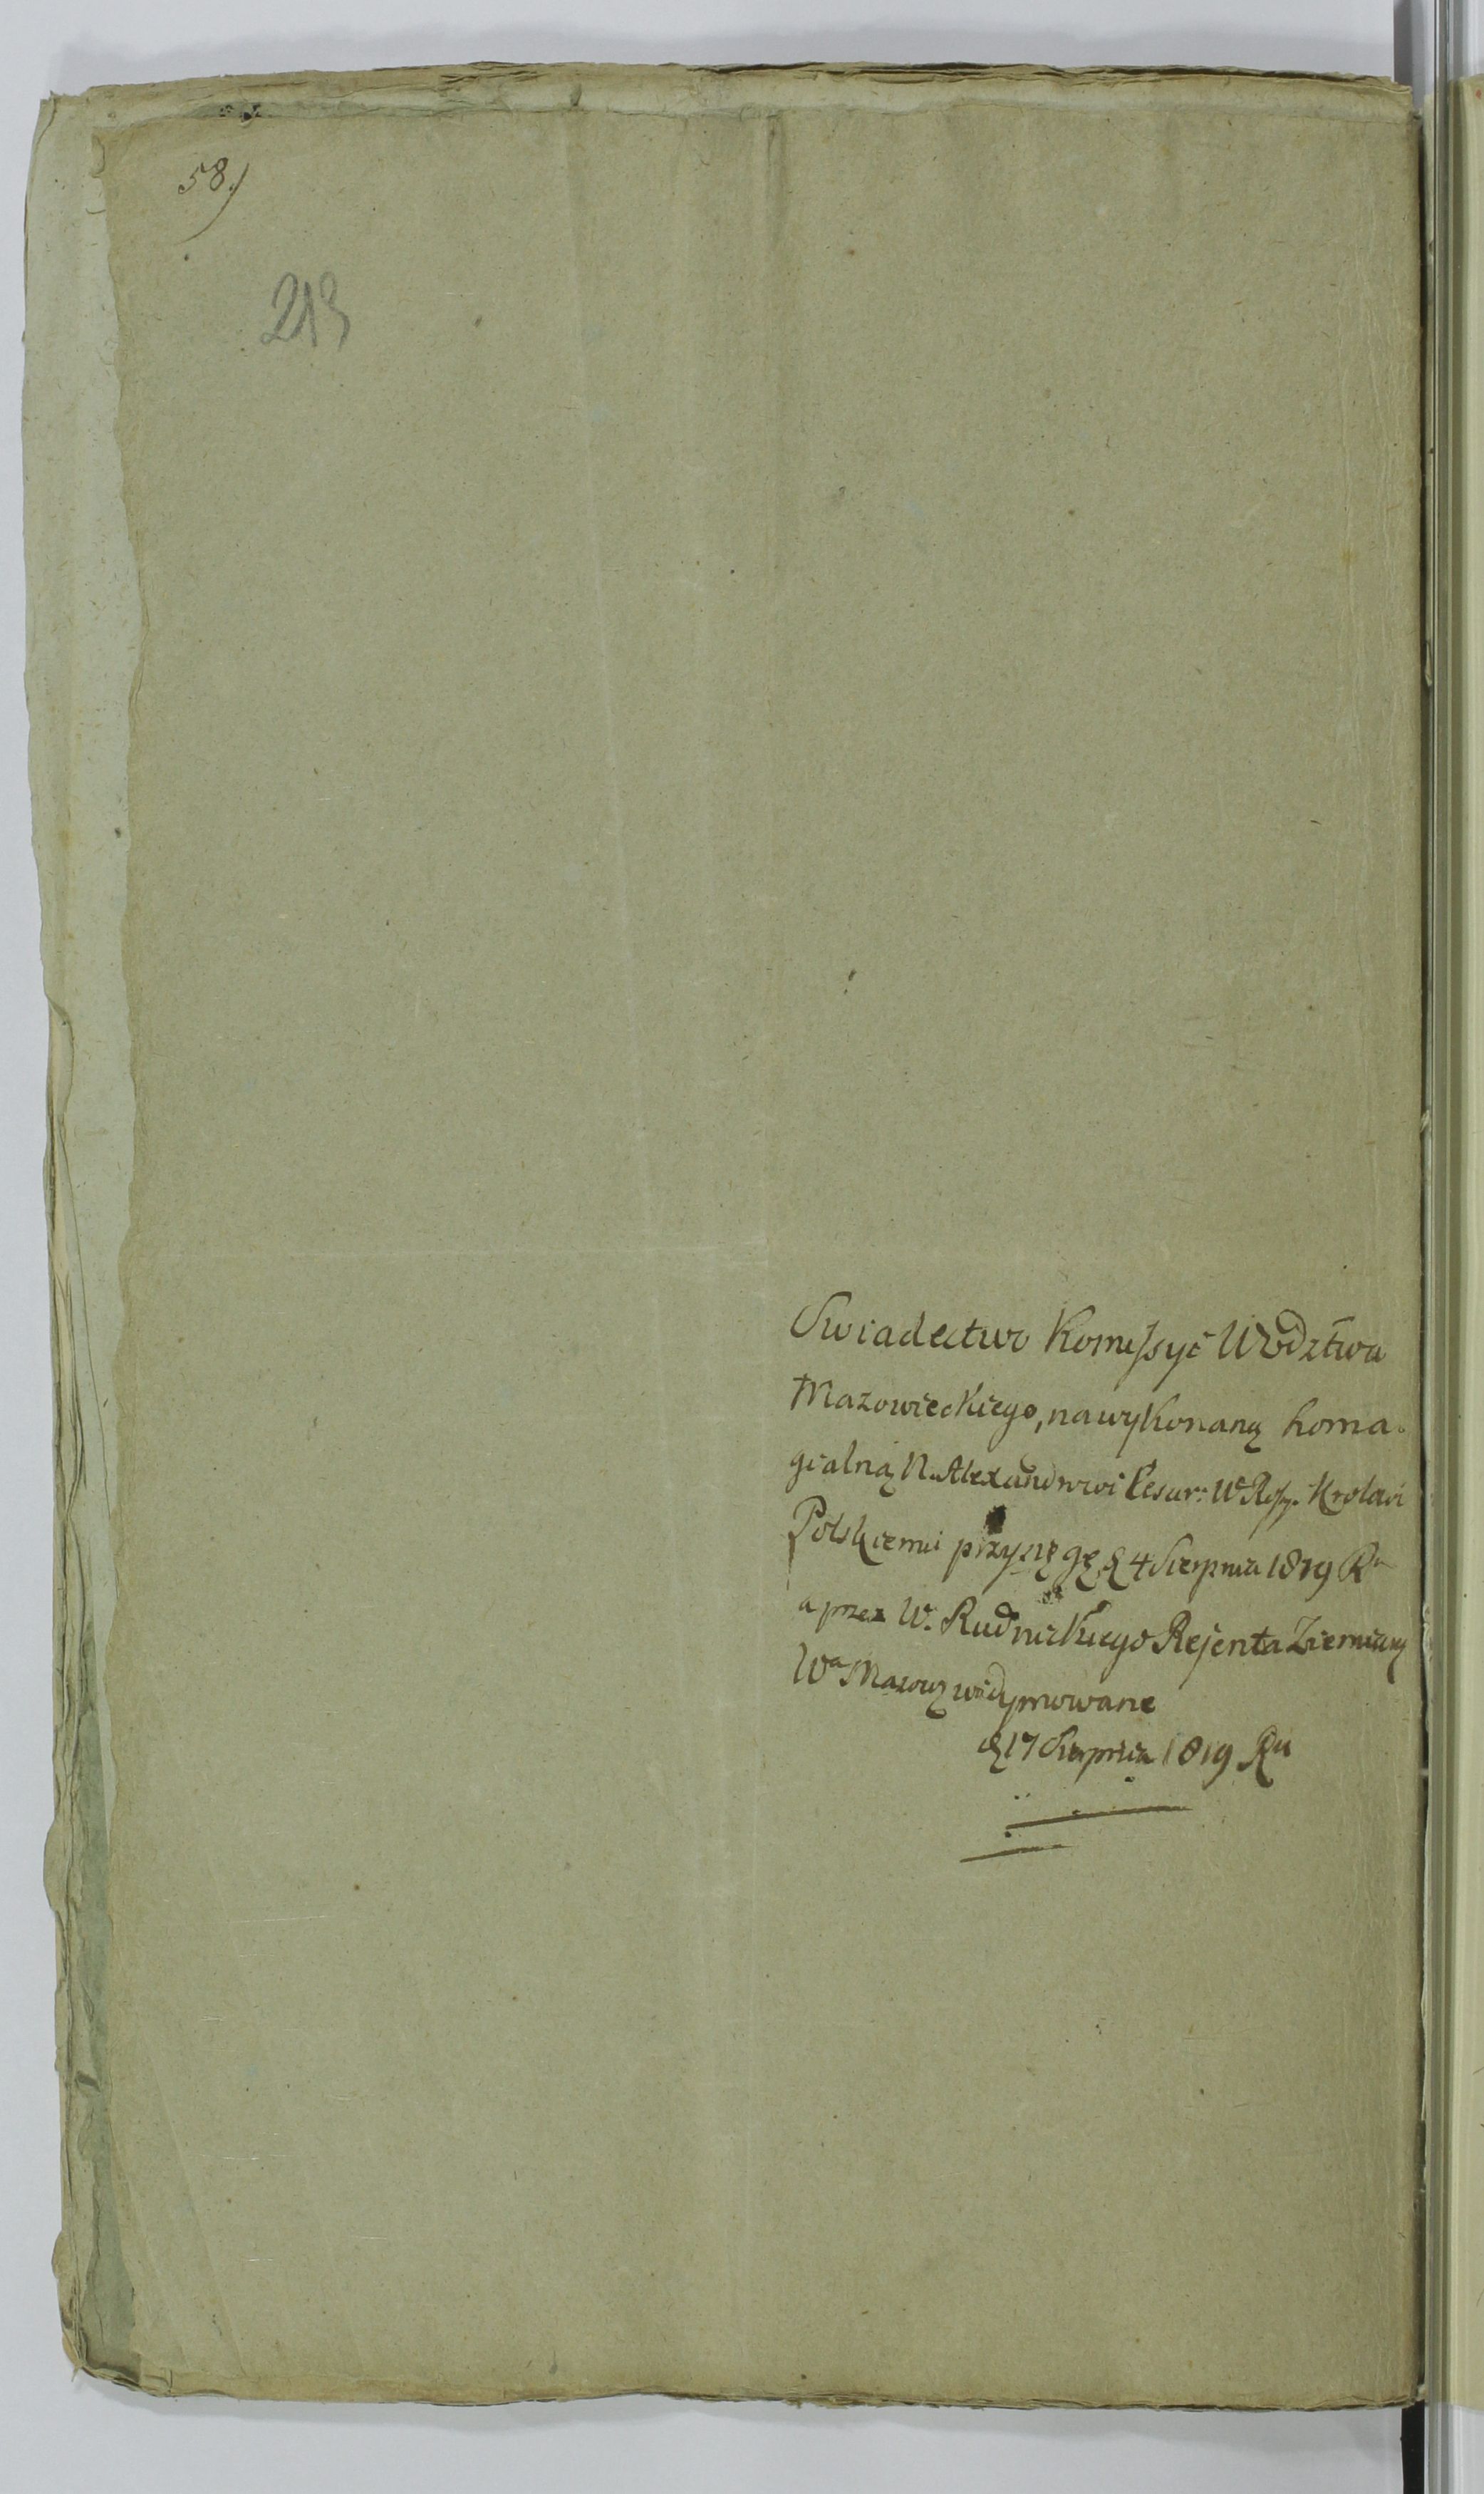 58.)
213
Swiadectwo Komissyi Wodztwa
Mazowieckiego, na wykonaną homa-
gialną N. Alexandrowi Cesar: W. Ross. Krolowi
Polskiemu przysięgę, d 4 Sierpnia 1819 Ru
a przez W. Rudnickiego Rejenta Ziemiańs
Wa Mazow: widymowane
d 17 Sierpnia 1819 Ru